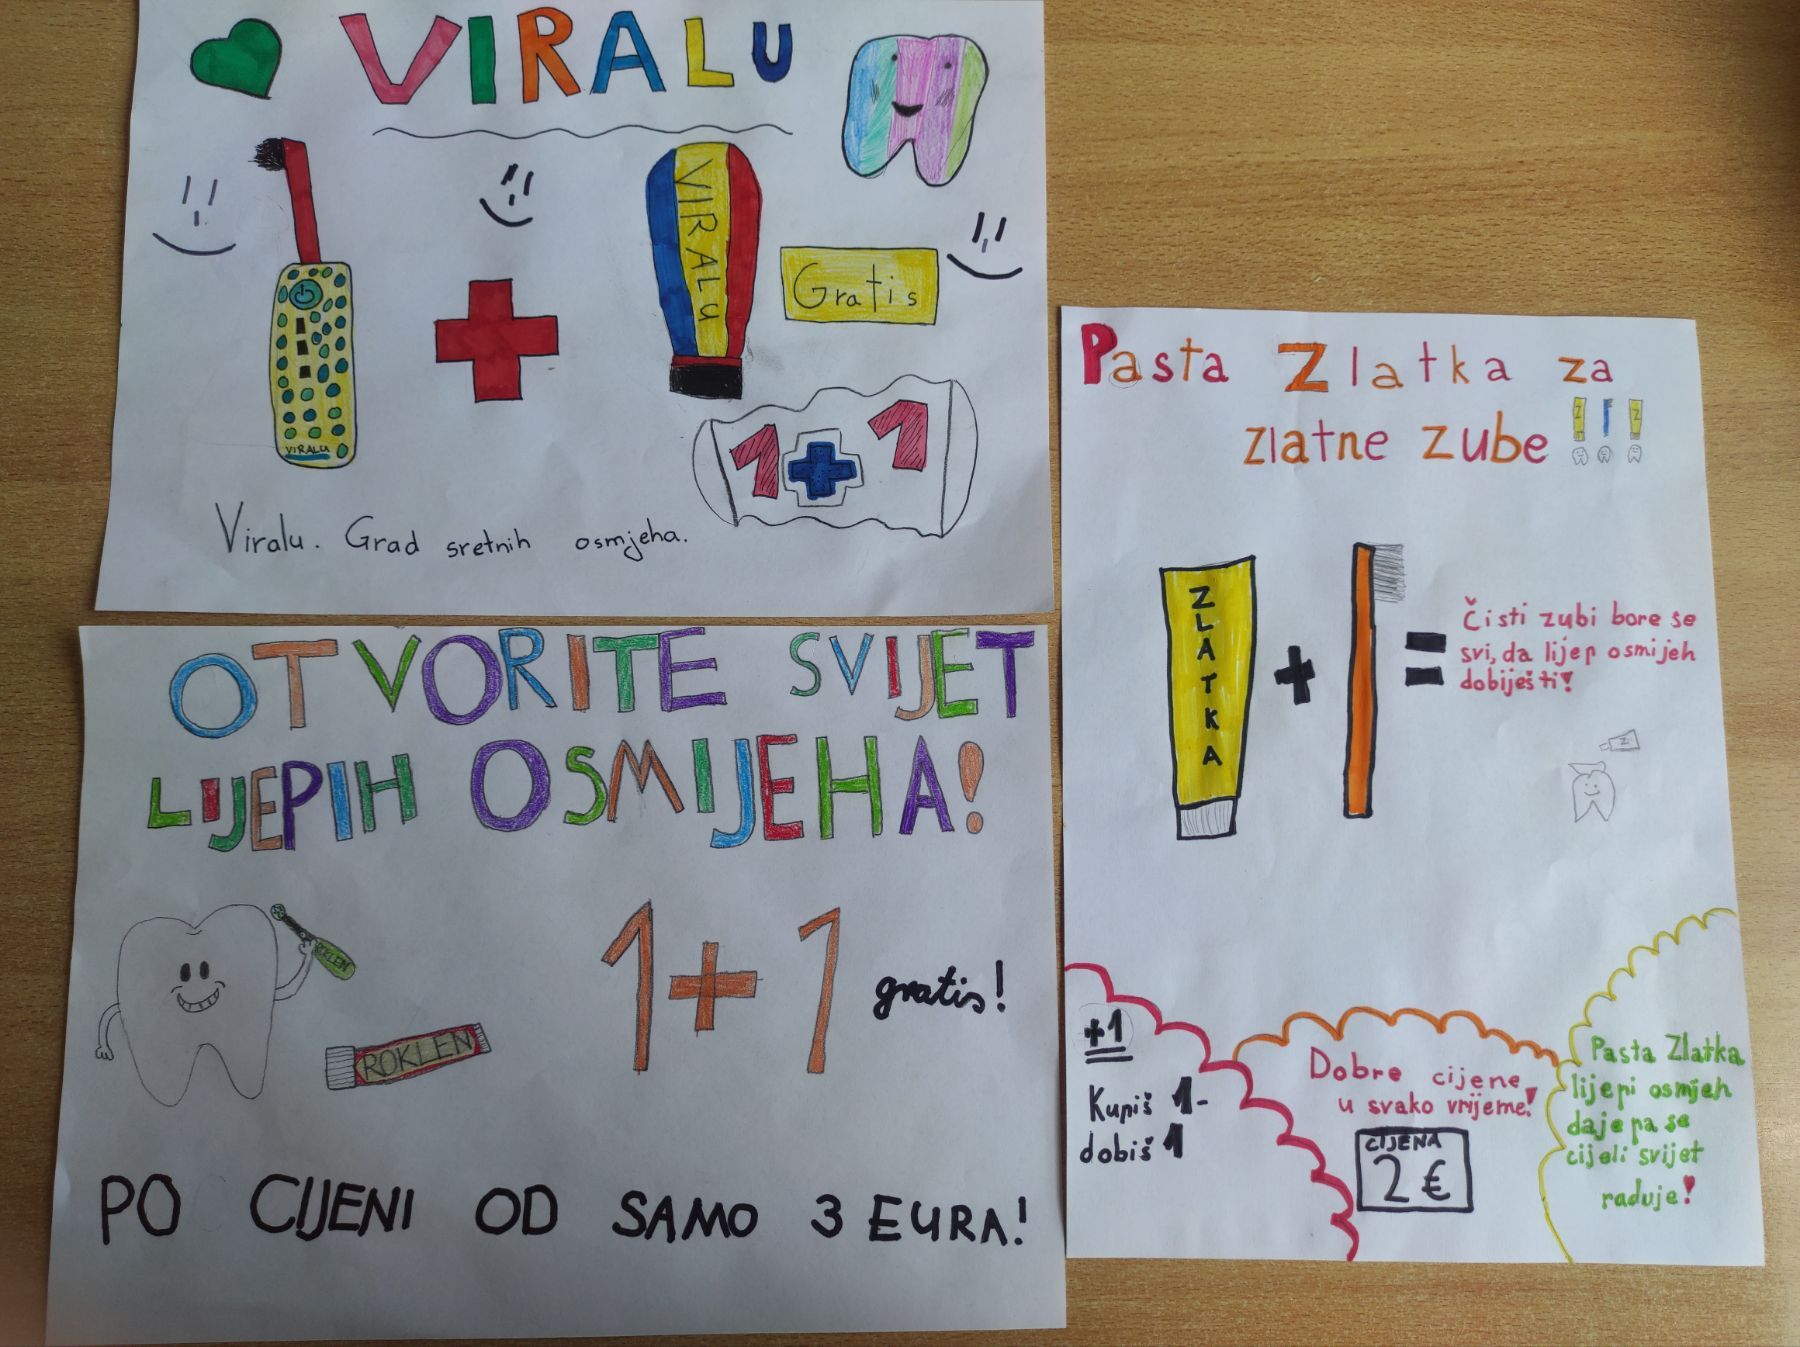 VIRALU
VIRALU
Gratis
1+1
VIRALU
Viralu. Grad sretnih osmjeha.
OTVORITE SVIJET
LIJEPIH OSMIJEHA!
ROKLEN
ROKLEN
1+1
gratis!
PO CIJENI OD SAMO 3 EURA!
Pasta Zlatka za
zlatne zube
Z
Z
ZLATKA
+
=
Čisti zubi bore se
svi, da lijep osmijeh
dobiješ ti!
Z
+1
Kupiš 1-
dobiš 1
Dobre cijene
u svako vrijeme!
CIJENA
2 €
Pasta Zlatka
lijepi osmjeh
daje pa se
cijeli svijet
raduje!